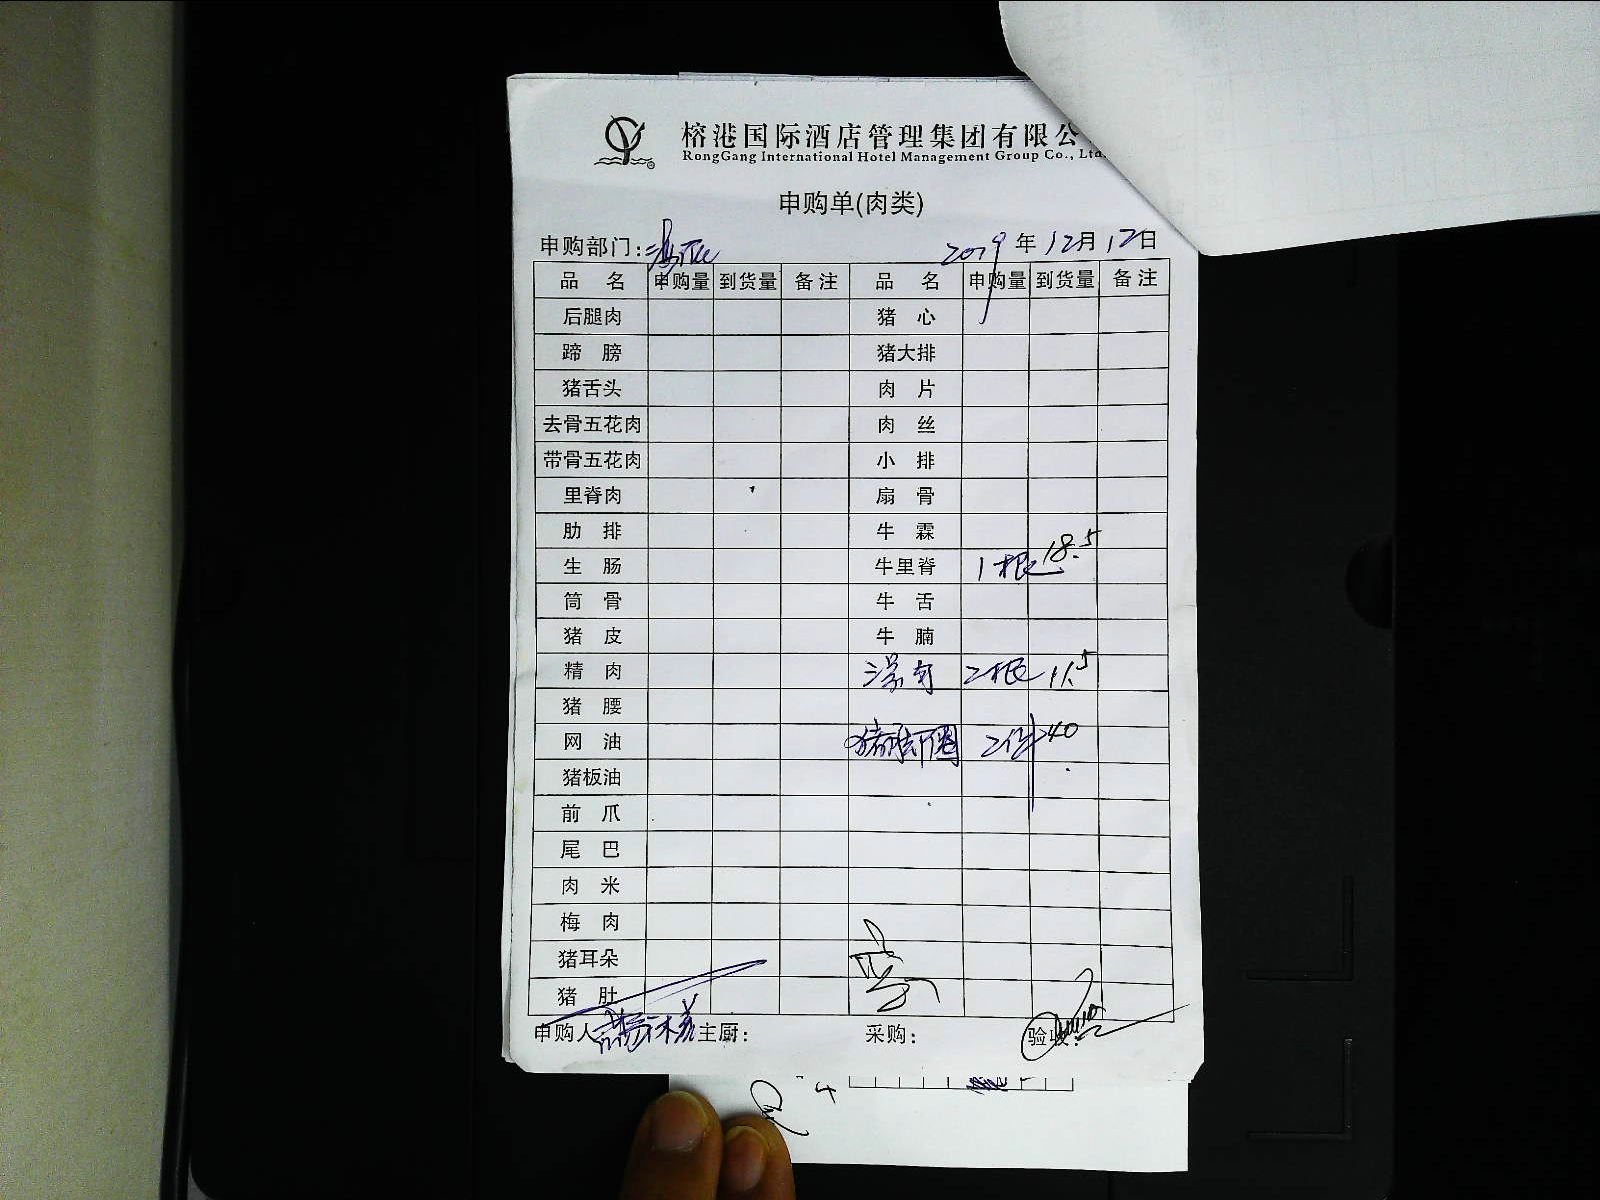 榕港国际酒店管理集团有限公
RongGang International Hotel Management Group Co., Ltd.
申购单(肉类)
申购部门: 2019年12月12日
品名 申购量 到货量 备注 品名 申购量 到货量 备注
后腿肉 猪心
蹄膀 猪大排
猪舌头 肉片
去骨五花肉 肉丝
带骨五花肉 小排
里脊肉 扇骨
肋排 牛霖
生肠 牛里脊 1根 18.5
筒骨 牛舌
猪皮 牛腩
精肉 2根 11.5
猪腰
网油 猪脚圈 2件 40
猪板油
前爪
尾巴
肉米
梅肉
猪耳朵
猪肚
申购人 主厨: 采购: 验收: